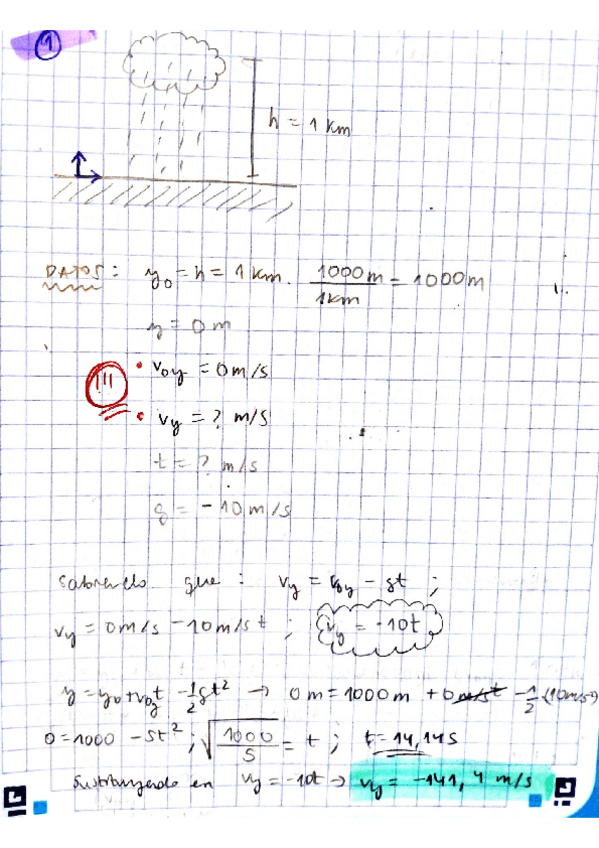 1
h = 1 km
DATOS: y₀ = h = 1 km. 1000m/1km = 1000m
y = 0 m
!!! • v₀y = 0 m/s
• vy = ? m/s
t = ? m/s
g = -10 m/s
Sabiendo que : vy = v₀y - gt ;
vy = 0m/s - 10m/s t ; vy = -10t
y = y₀ + v₀y t - 1/2 gt² → 0 m = 1000 m + 0 m/s t - 1/2 (10ms²)
0 = 1000 - 5t² ; √1000/5 = t ; t = 14,14s
Sustituyendo en vy = -10t → vy = -141,4 m/s